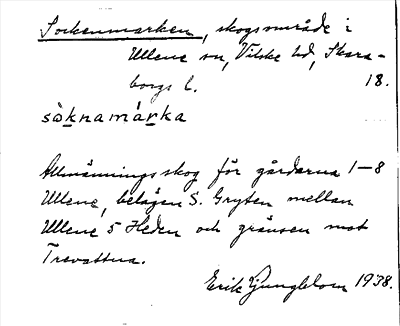 Sockenmarken, skogsområde i
Ullene sn, Vilske hd, Skara-
borgs l. 18.
sòknamárka
Allmänningsskog för gårdarna 1–8
Ullene, belägen S. Gryten mellan
Ullene 5 Heden och gränsen mot
Trevattna.
Erik Ljungblom 1938.